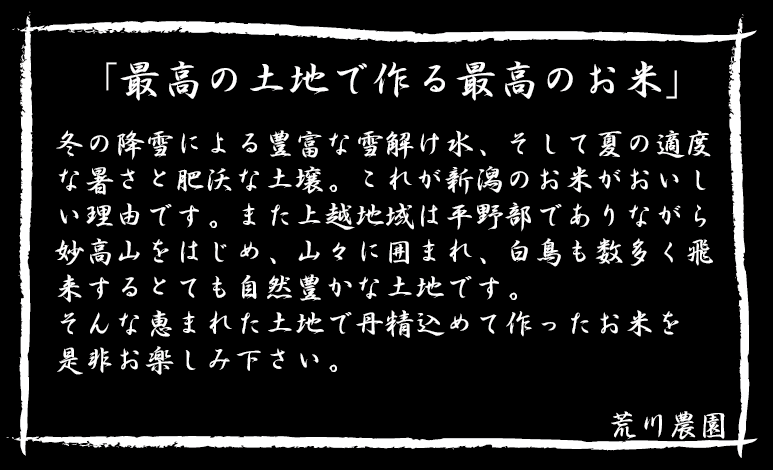 「最高の土地で作る最高のお米」
冬の降雪による豊富な雪解け水、そして夏の適度
な暑さと肥沃な土壌。これが新潟のお米がおいし
い理由です。また上越地域は平野部でありながら
妙高山をはじめ、山々に囲まれ、白鳥も数多く飛
来するとても自然豊かな土地です。
そんな恵まれた土地で丹精込めて作ったお米を
是非お楽しみ下さい。
荒川農園